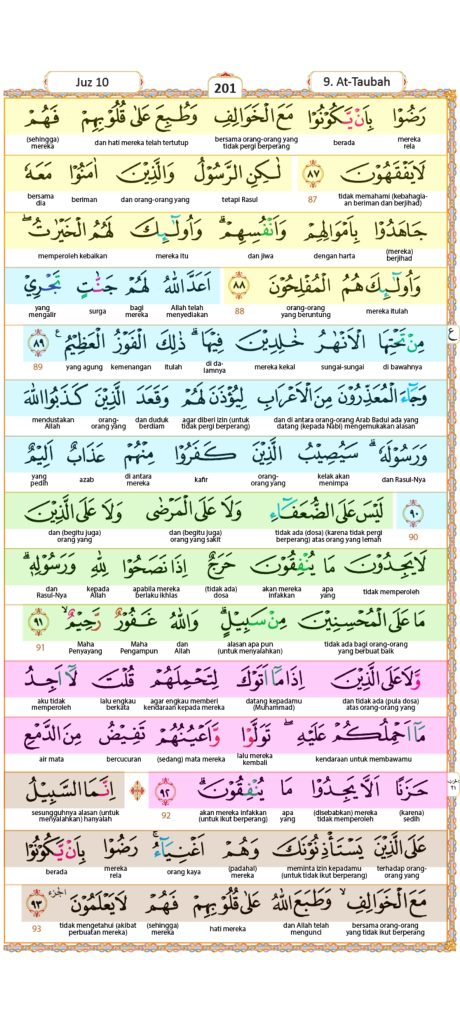 Juz 10
201
9. At-Taubah
رَضُوْا بِاَنْ يَّكُوْنُوْا مَعَ الْخَوَالِفِ وَطُبِعَ عَلٰى قُلُوْبِهِمْ فَهُمْ
mereka rela berada bersama orang-orang yang tidak pergi berperang dan hati mereka telah tertutup (sehingga) mereka
لَا يَفْقَهُوْنَ ٨٧ لٰكِنِ الرَّسُوْلُ وَالَّذِيْنَ اٰمَنُوْا مَعَهٗ
tidak memahami (kebahagiaan beriman dan berjihad) 87 tetapi Rasul dan orang-orang yang beriman bersama dia
جَاهَدُوْا بِاَمْوَالِهِمْ وَاَنْفُسِهِمْۗ وَاُولٰۤىِٕكَ لَهُمُ الْخَيْرٰتُۖ
(mereka) berjihad dengan harta dan jiwa mereka itu memperoleh kebaikan
وَاُولٰۤىِٕكَ هُمُ الْمُفْلِحُوْنَ ٨٨ اَعَدَّ اللّٰهُ لَهُمْ جَنّٰتٍ تَجْرِيْ
mereka itulah orang-orang yang beruntung 88 Allah telah menyediakan bagi mereka surga yang mengalir
مِنْ تَحْتِهَا الْاَنْهٰرُ خٰلِدِيْنَ فِيْهَاۗ ذٰلِكَ الْفَوْزُ الْعَظِيْمُ ࣖ ٨٩
di bawahnya sungai-sungai mereka kekal di dalamnya itulah kemenangan yang agung 89
ع
وَجَاۤءَ الْمُعَذِّرُوْنَ مِنَ الْاَعْرَابِ لِيُؤْذَنَ لَهُمْ وَقَعَدَ الَّذِيْنَ كَذَبُوا اللّٰهَ
dan di antara orang-orang Arab Badui ada yang datang (kepada Nabi) mengemukakan alasan agar diberi izin (untuk tidak pergi berperang) dan duduk berdiam orang-orang yang mendustakan Allah
وَرَسُوْلَهٗۗ سَيُصِيْبُ الَّذِيْنَ كَفَرُوْا مِنْهُمْ عَذَابٌ اَلِيْمٌ
dan Rasul-Nya kelak akan menimpa orang-orang yang kafir di antara mereka azab yang pedih
٩٠ لَيْسَ عَلَى الضُّعَفَاۤءِ وَلَا عَلَى الْمَرْضٰى وَلَا عَلَى الَّذِيْنَ
90 tidak ada (dosa) (karena tidak pergi berperang) atas orang yang lemah dan (begitu juga) orang yang sakit dan (begitu juga) orang yang
لَا يَجِدُوْنَ مَا يُنْفِقُوْنَ حَرَجٌ اِذَا نَصَحُوْا لِلّٰهِ وَرَسُوْلِهٖۗ
tidak memperoleh apa yang akan mereka infakkan (tidak ada) dosa apabila mereka berlaku ikhlas kepada Allah dan Rasul-Nya
مَا عَلَى الْمُحْسِنِيْنَ مِنْ سَبِيْلٍۗ وَاللّٰهُ غَفُوْرٌ رَّحِيْمٌۙ ٩١
tidak ada bagi orang-orang yang berbuat baik alasan apa pun (untuk menyalahkan) dan Allah Maha Pengampun Maha Penyayang 91
وَّلَا عَلَى الَّذِيْنَ اِذَا مَآ اَتَوْكَ لِتَحْمِلَهُمْ قُلْتَ لَآ اَجِدُ
dan tidak ada (pula dosa) atas orang-orang yang datang kepadamu (Muhammad) agar engkau memberi kendaraan kepada mereka lalu engkau berkata aku tidak memperoleh
مَآ اَحْمِلُكُمْ عَلَيْهِۖ تَوَلَّوْا وَّاَعْيُنُهُمْ تَفِيْضُ مِنَ الدَّمْعِ
kendaraan untuk membawamu lalu mereka kembali (sedang) mata mereka bercucuran air mata
حَزَنًا اَلَّا يَجِدُوْا مَا يُنْفِقُوْنَۗ ٩٢ اِنَّمَا السَّبِيْلُ
(karena) sedih (disebabkan) mereka tidak memperoleh apa yang akan mereka infakkan (untuk ikut berperang) 92 sesungguhnya alasan (untuk menyalahkan) hanyalah
عَلَى الَّذِيْنَ يَسْتَأْذِنُوْنَكَ وَهُمْ اَغْنِيَاۤءُۚ رَضُوْا بِاَنْ يَّكُوْنُوْا
terhadap orang-orang yang meminta izin kepadamu (untuk tidak ikut berperang) (padahal) mereka orang kaya mereka rela berada
مَعَ الْخَوَالِفِۙ وَطَبَعَ اللّٰهُ عَلٰى قُلُوْبِهِمْ فَهُمْ لَا يَعْلَمُوْنَ ٩٣
bersama orang-orang yang tidak ikut berperang dan Allah telah mengunci hati mereka (sehingga) mereka tidak mengetahui (akibat perbuatan mereka) 93